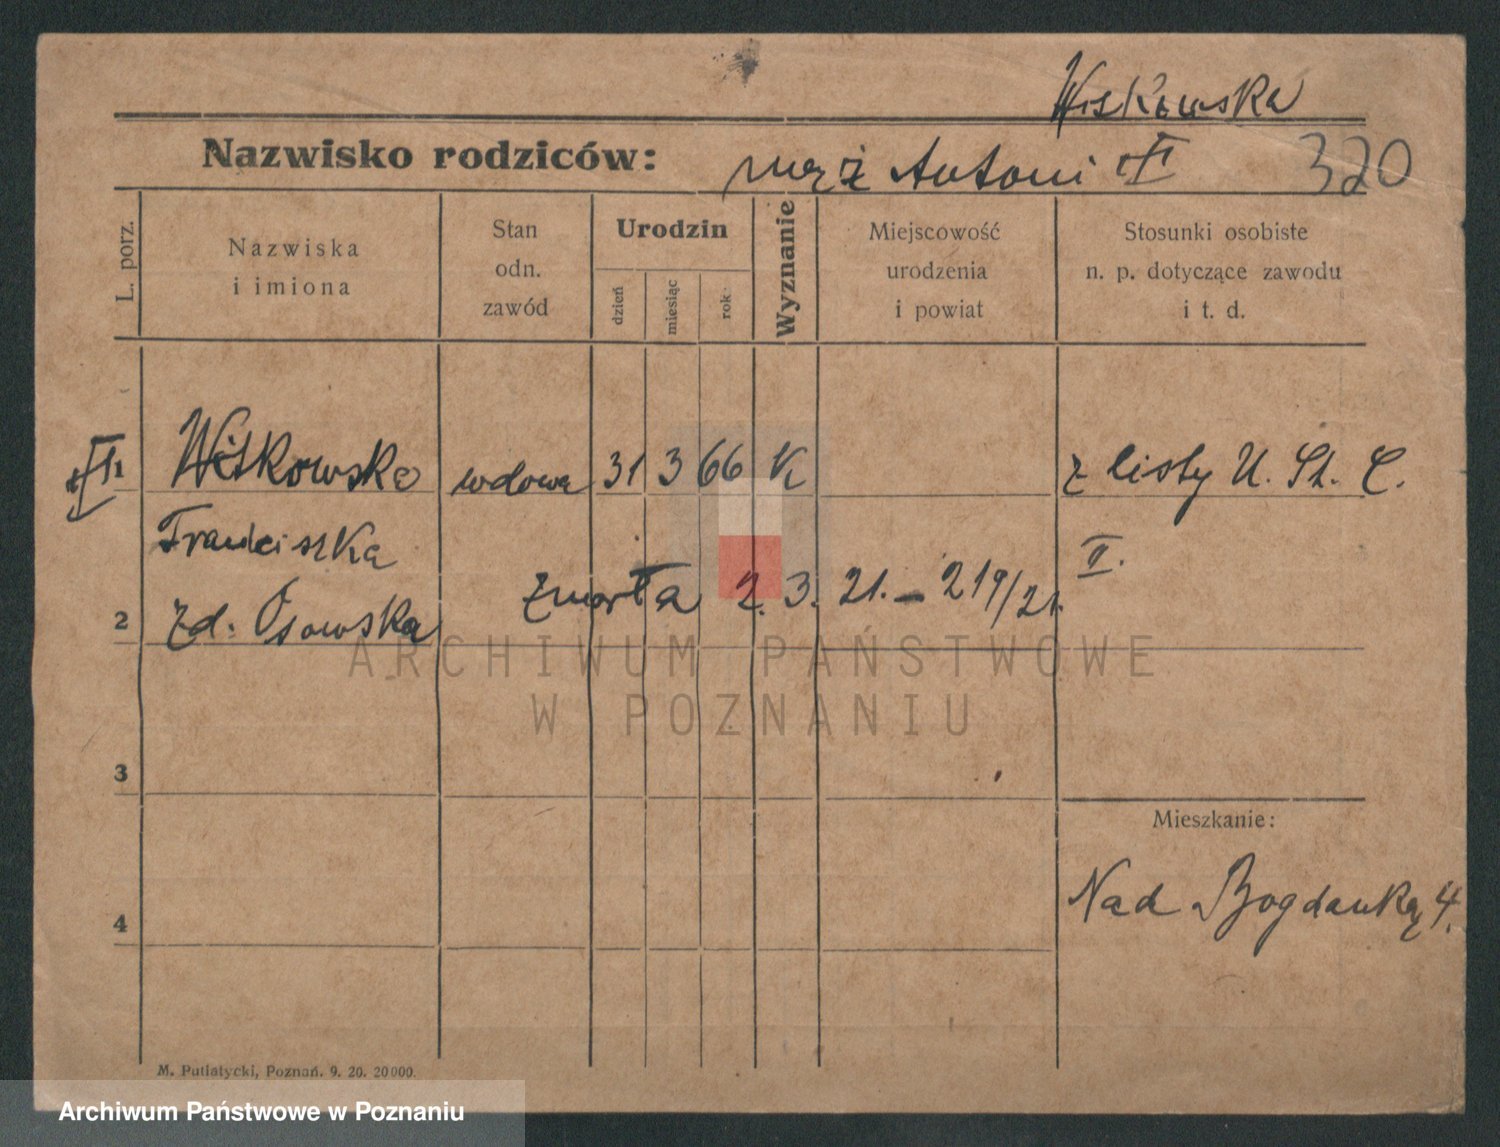 Witkowska
Nazwisko rodziców: mąż Antoni † 320
L. porz.
Nazwiska i imiona
Stan odn. zawód
Urodzin
dzień
miesiąc
rok
Wyznanie
Miejscowość urodzenia i powiat
Stosunki osobiste n. p. dotyczące zawodu i t. d.
† 1 Witkowska wdowa 31 3 66 K z listy U. St. C.
Franciszka II.
2 zd. Osowska zmarła 2. 3. 21. – 219/21.
3
Mieszkanie:
4 Nad Bogdanką 4.
M. Putiatycki, Poznań. 9. 20. 20000.
ARCHIWUM PAŃSTWOWE
W POZNANIU
Archiwum Państwowe w Poznaniu